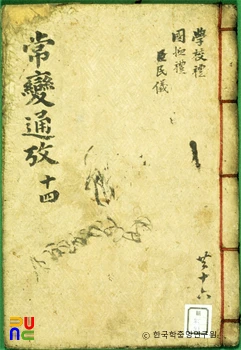 常變通攷 十四
學校禮
國恤禮
臣民儀
共十六
© 한국학중앙연구원